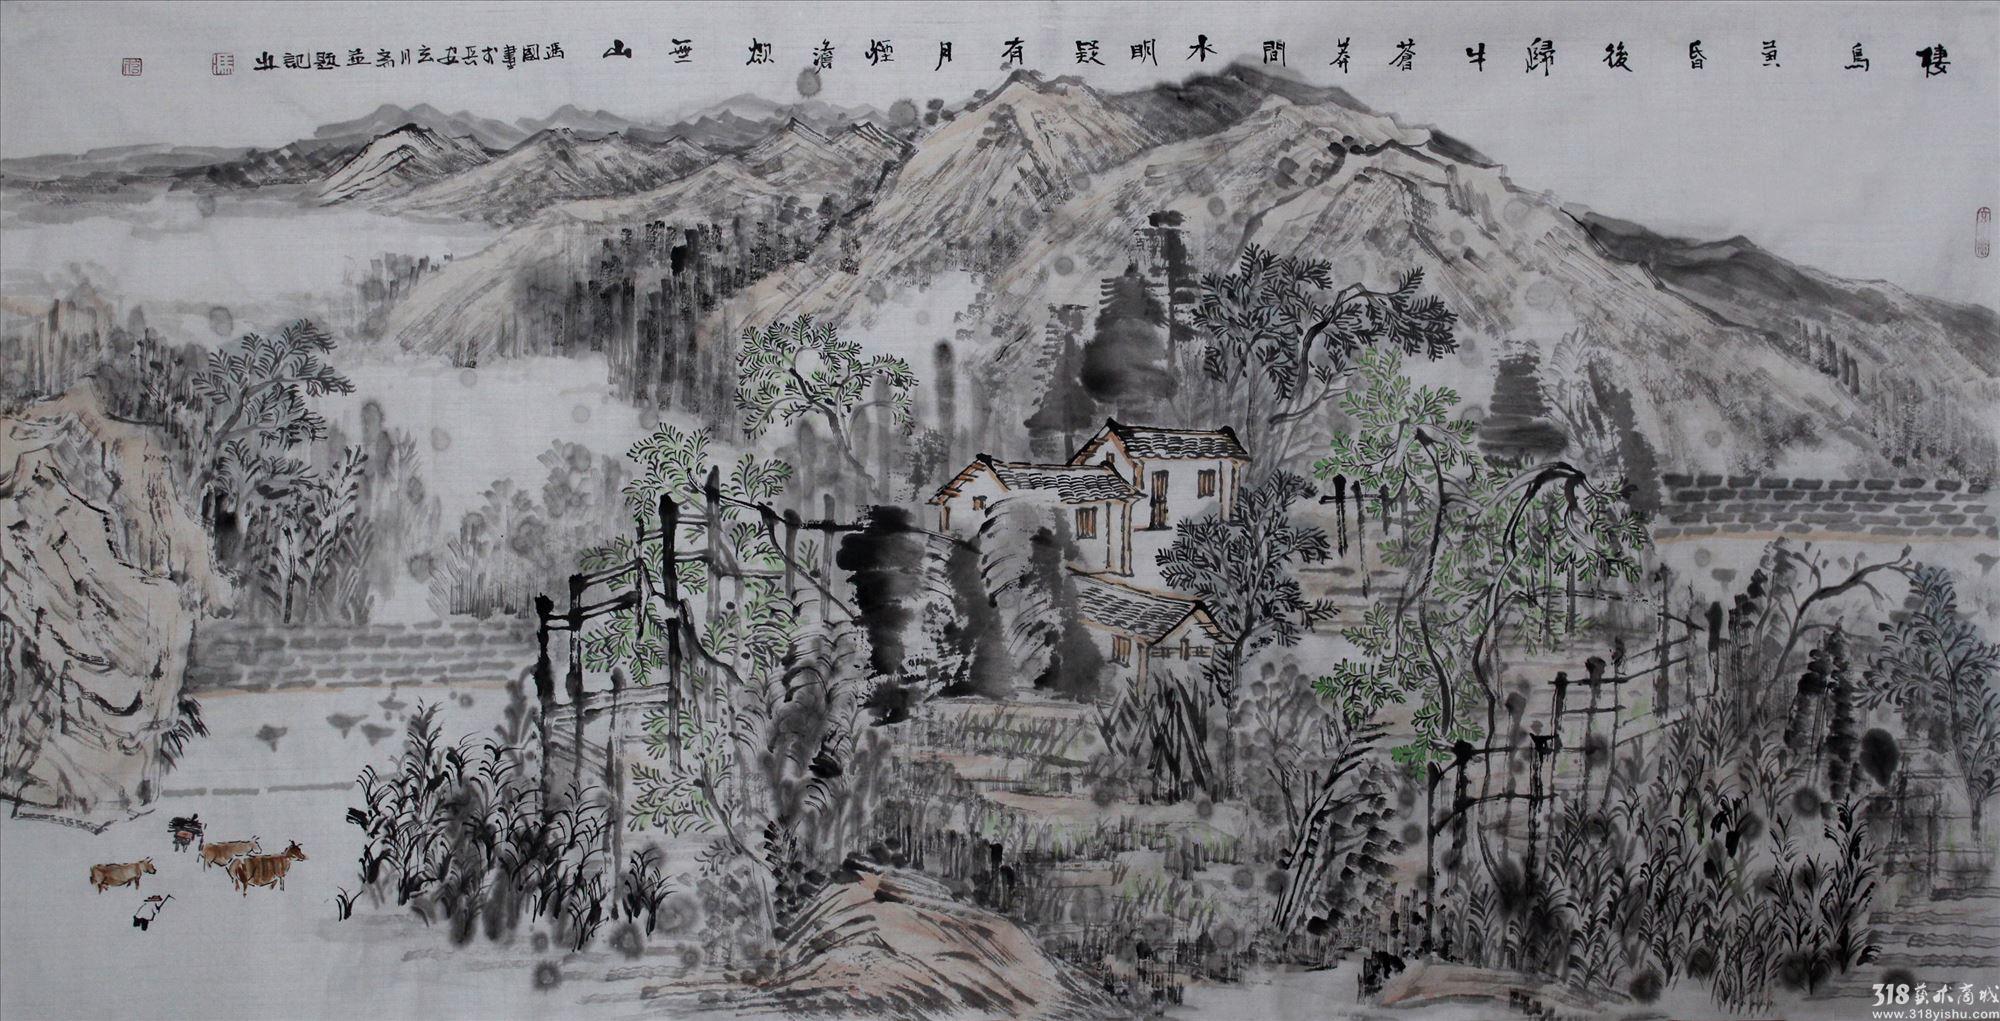 棲鳥黃昏後歸牛蒼莽間水明疑有月煙澹欲無山
馮國畫于長安玄月齋並題記之
318艺术商城
www.318yishu.com